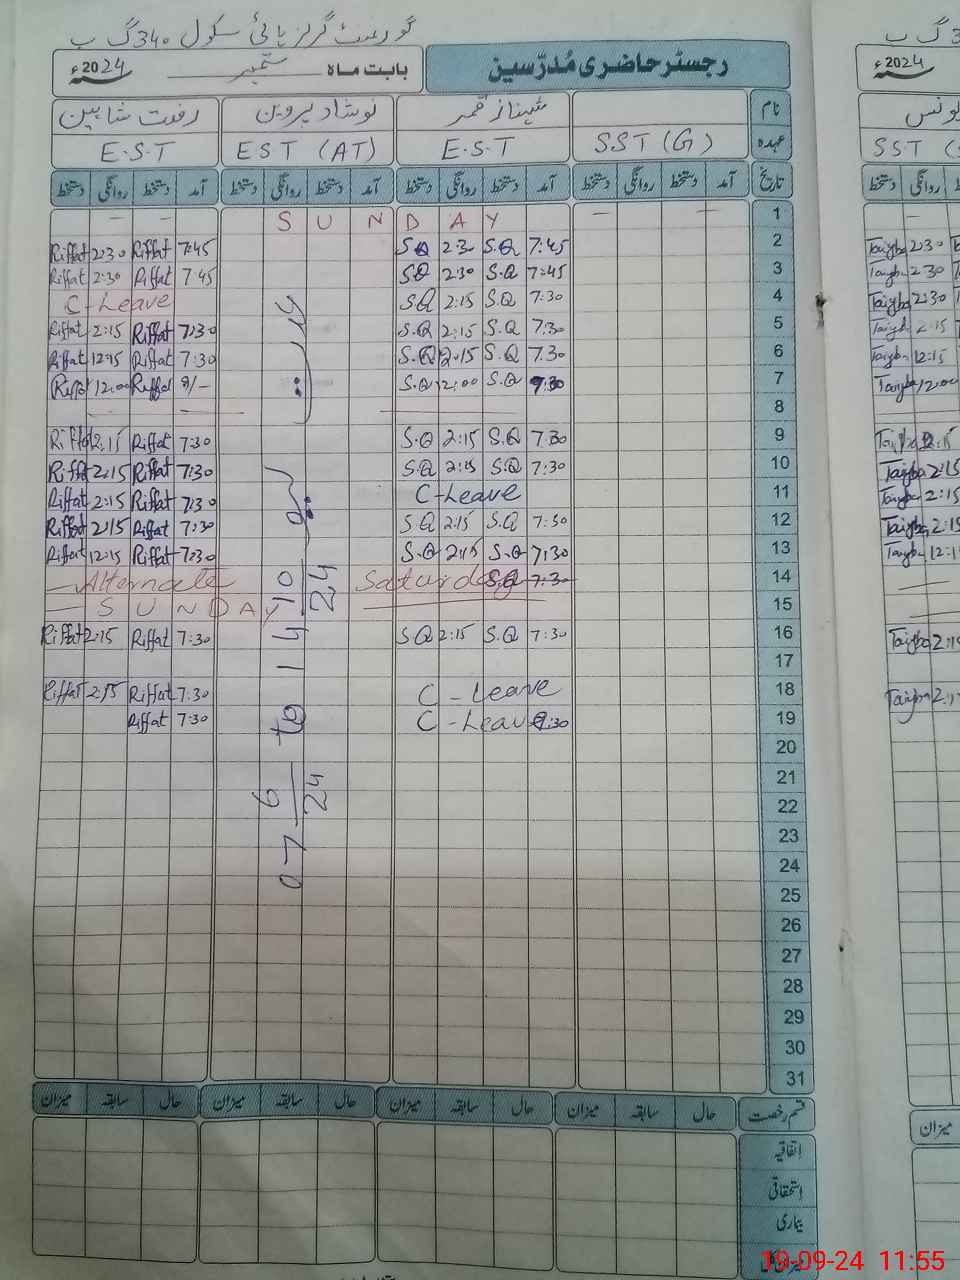 گورنمنٹ گرلز ہائی سکول 340 گ ب
رجسٹر حاضری مُدرّسین بابت ماہ ستمبر 2024ء
نام شہناز قمر نوشاد پروین رفعت شاہین
عہدہ SST (G) E.S.T EST (AT) E.S.T
تاریخ آمد دستخط روانگی دستخط آمد دستخط روانگی دستخط آمد دستخط روانگی دستخط آمد دستخط روانگی دستخط
SUNDAY 1
Riffat 2:30 Riffat 7:45 S.Q 2:30 S.Q 7:45 2
Riffat 2:30 Riffat 7:45 S.Q 2:30 S.Q 7:45 3
C-Leave S.Q 2:15 S.Q 7:30 4
Riffat 2:15 Riffat 7:30 S.Q 2:15 S.Q 7:30 5
Riffat 12:15 Riffat 7:30 S.Q 12:15 S.Q 7:30 6
Riffat 12:00 Riffat 8/- S.Q 12:00 S.Q 7:30 7
8
Riffat 2:15 Riffat 7:30 S.Q 2:15 S.Q 7:30 9
Riffat 2:15 Riffat 7:30 S.Q 2:15 S.Q 7:30 10
Riffat 2:15 Riffat 7:30 C-Leave 11
Riffat 2:15 Riffat 7:30 S.Q 2:15 S.Q 7:30 12
Riffat 12:15 Riffat 7:30 S.Q 12:15 S.Q 7:30 13
Alternate Saturday S.Q 7:30 14
SUNDAY 15
Riffat 2:15 Riffat 7:30 S.Q 2:15 S.Q 7:30 16
17
Riffat 2:15 Riffat 7:30 C-Leave 18
Riffat 7:30 C-Leave 7:30 19
20
21
22
23
24
25
26
27
28
29
30
31
07 6/24 to 14 10/24
قسم رخصت حال سابقہ میزان حال سابقہ میزان حال سابقہ میزان حال سابقہ میزان
اتفاقیہ
استحقاقی
بیماری
34 گ ب
2024ء
یونس
SST
دستخط روانگی
Taiyba 2:30
Taiyba 2:30
Taiyba 2:30
Taiyba 2:15
Taiyba 12:15
Taiyba 12:00
Taiyba 2:15
Taiyba 2:15
Taiyba 2:15
Taiyba 2:15
Taiyba 12:1
Taiyba 2:1
Taiyba 2:1
میزان
19-09-24 11:55